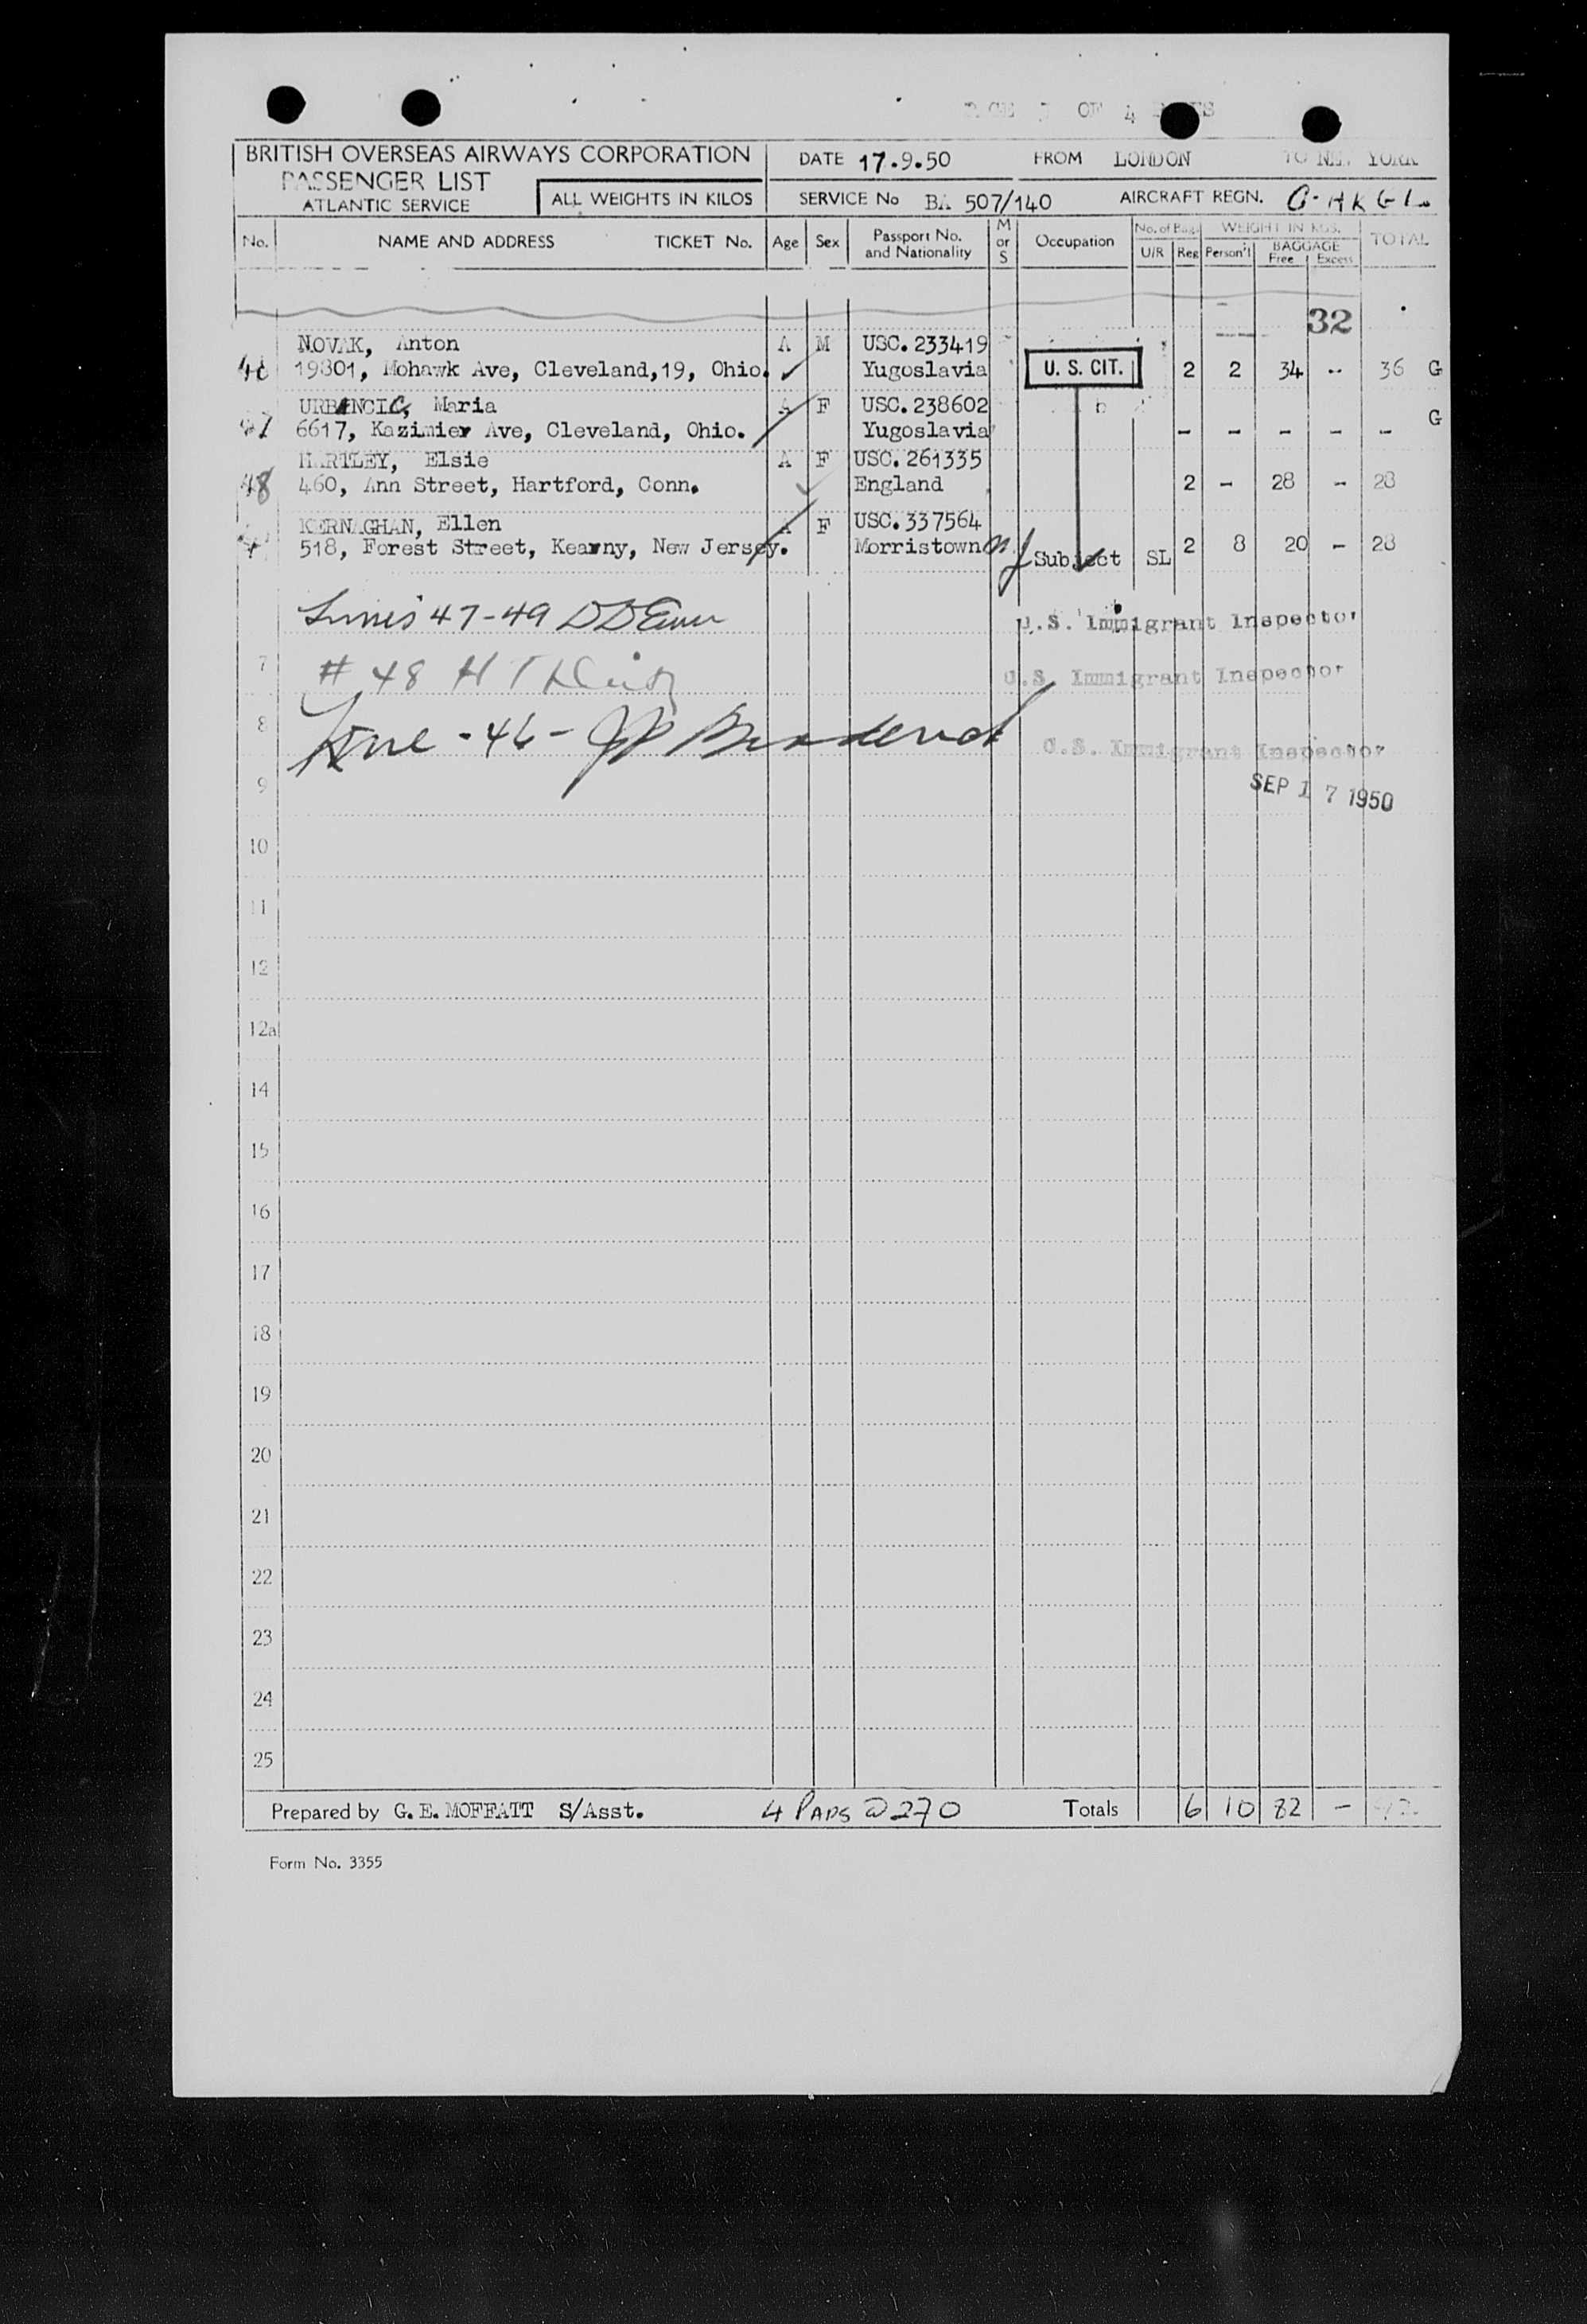 OF 4
BRITISH OVERSEAS AIRWAYS CORPORATION
PASSENGER LIST
ATLANTIC SERVICE
ALL WEIGHTS IN KILOS
DATE 17.9.50 FROM LONDON TO NEW YORK
SERVICE No BA 507/140 AIRCRAFT REGN. G-AKGL
No. NAME AND ADDRESS TICKET No. Age Sex Passport No. and Nationality M or S Occupation No. of Bags U/R Reg WEIGHT IN KGS. Person'l BAGGAGE Free Excess TOTAL
32
NOVAK, Anton A M USC.233419
46 19801, Mohawk Ave, Cleveland,19, Ohio. Yugoslavia U. S. CIT. 2 2 34 -- 36 G
URBANCIC, Maria A F USC.238602
47 6617, Kazimier Ave, Cleveland, Ohio. Yugoslavia - - - - - G
HARTLEY, Elsie A F USC.261335
48 460, Ann Street, Hartford, Conn. England 2 - 28 - 28
KERNAGHAN, Ellen A F USC.337564
518, Forest Street, Kearny, New Jersey. Morristown NJ Subject SL 2 8 20 - 28
Lines 47-49 U.S. Immigrant Inspector
7 # 48 U.S. Immigrant Inspector
8 Line - 46 - U.S. Immigrant Inspector
9 SEP 17 1950
10
11
12
12a
14
15
16
17
18
19
20
21
22
23
24
25
Prepared by G.E.MOFFATT S/Asst. 4 PAPS @ 270 Totals 6 10 82 -
Form No. 3355